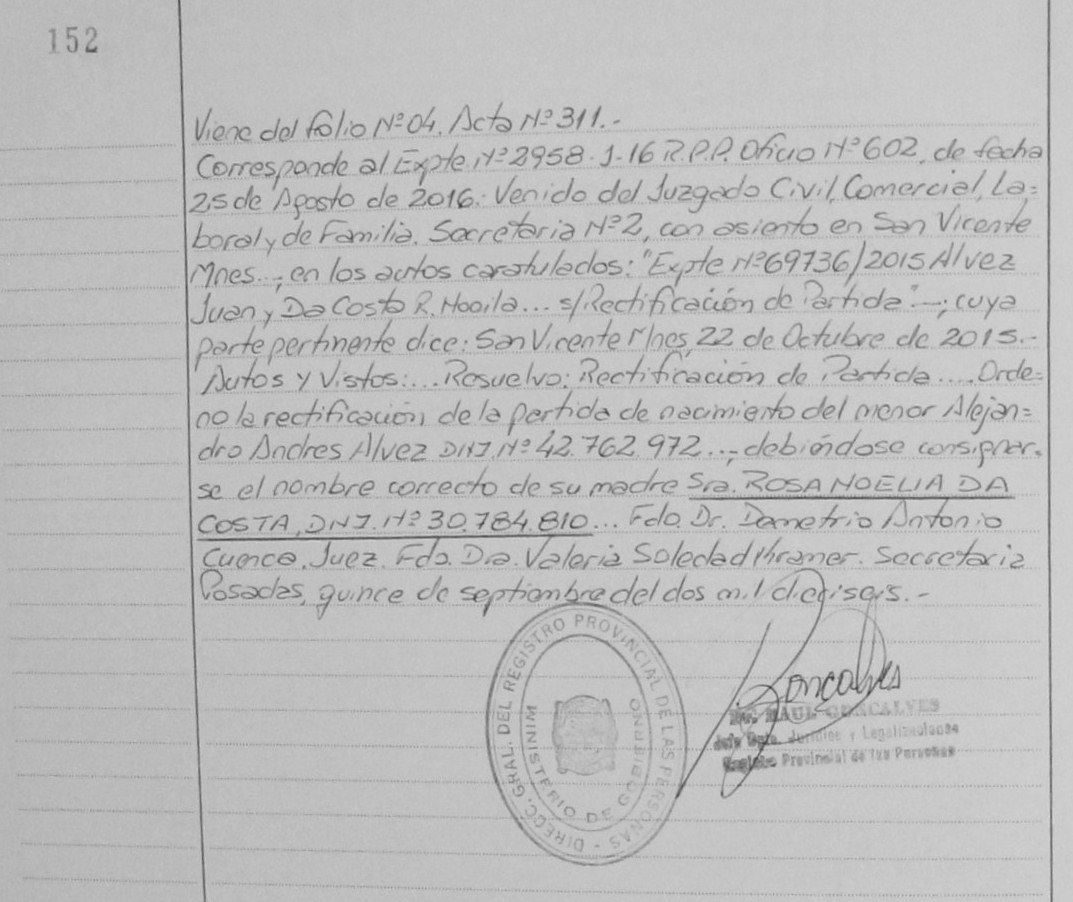 152
Viene del folio Nº 04. Acta Nº 311.-
Corresponde al Expte. Nº 2958.J-16 R.P.P. Oficio Nº 602, de fecha
25 de Agosto de 2016. Venido del Juzgado Civil, Comercial, La=
boral y de Familia. Secretaria Nº 2, con asiento en San Vicente
Mnes..., en los autos caratulados: "Expte Nº 69736/2015 Alvez
Juan y Da Costa R. Noaila... s/Rectificación de Partida"-; cuya
parte pertinente dice: San Vicente Mnes, 22 de Octubre de 2015.-
Autos y Vistos:... Resuelvo: Rectificación de Partida.... Orde=
no la rectificación de la partida de nacimiento del menor Alejan=
dro Andres Alvez DNI. Nº 42.762.972..., debiéndose consignar-
se el nombre correcto de su madre Sra. ROSA NOELIA DA
COSTA, DNI. Nº 30.784.810... Fdo. Dr. Demetrio Antonio
Cuenca. Juez. Fdo. Dra. Valeria Soledad Kramer. Secretaria
Posadas, quince de septiembre del dos mil dieciseis.-
DIRECC. GRAL. DEL REGISTRO PROVINCIAL DE LAS PERSONAS -
MINISTERIO DE GOBIERNO
Goncalves
RAUL GONCALVES
Jefe Dpto. Jurídico y Legalizaciones
Registro Provincial de las Personas